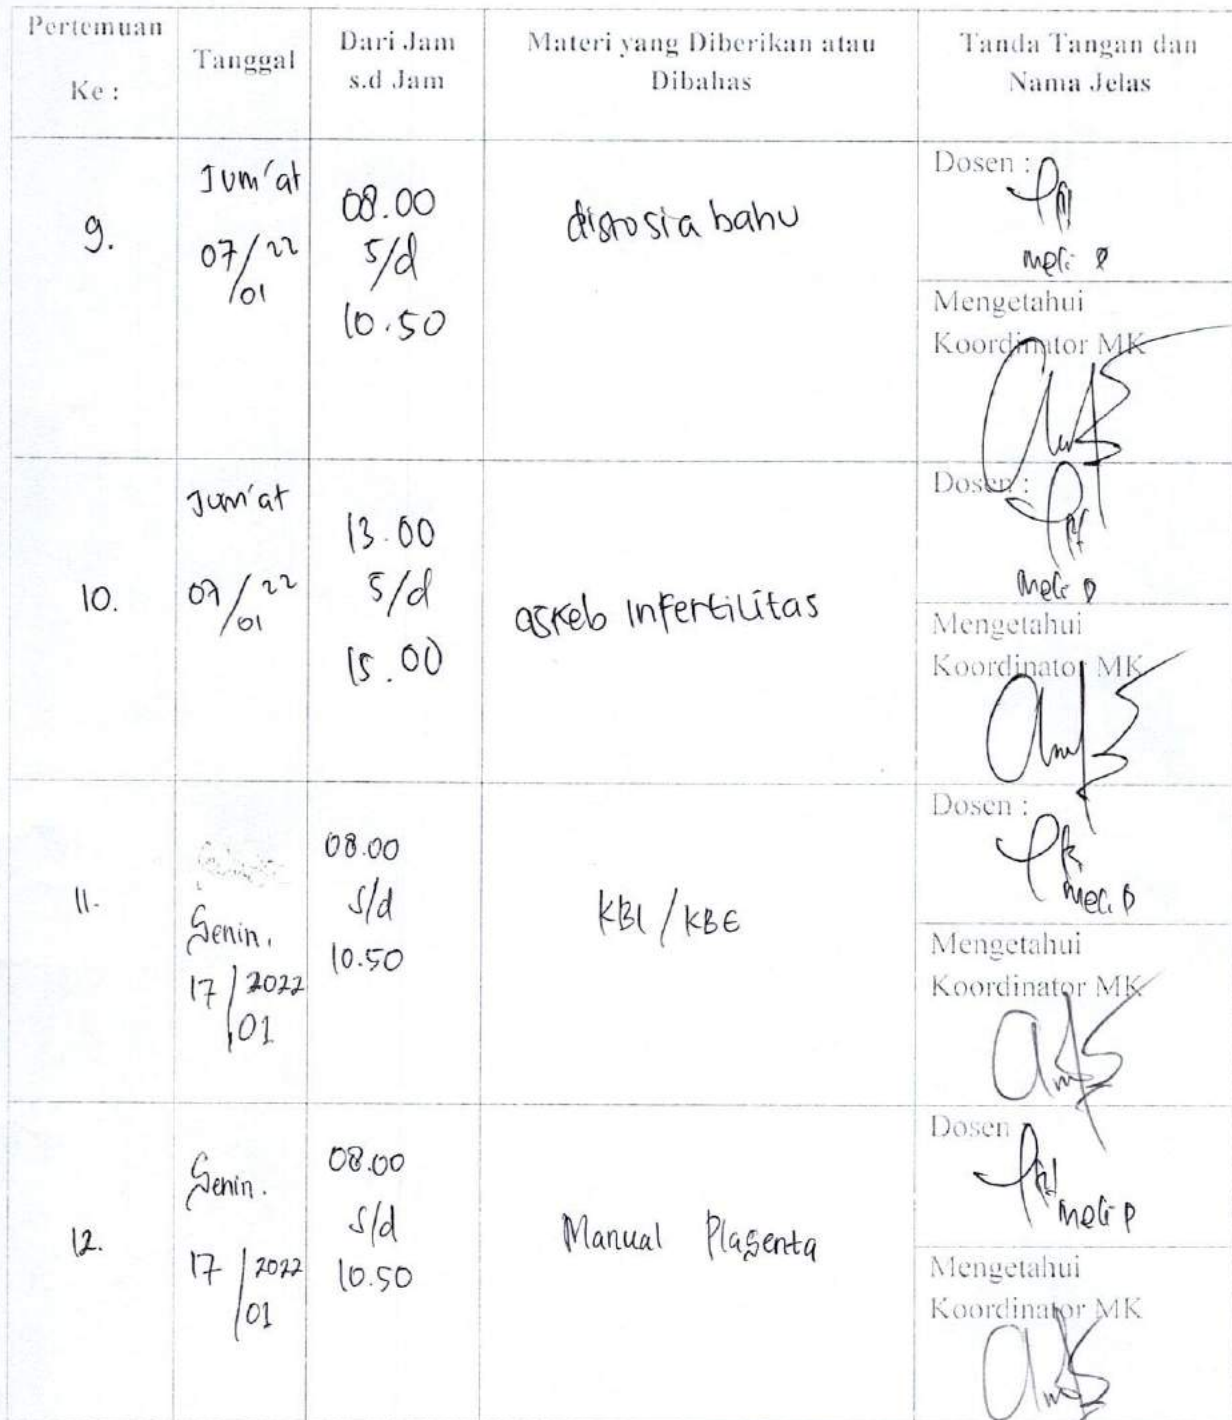 Pertemuan
Ke :
Tanggal
Dari Jam
s.d Jam
Materi yang Diberikan atau
Dibahas
Tanda Tangan dan
Nama Jelas
9.
Jum'at
07/22
/01
08.00
s/d
10.50
distosia bahu
Dosen :
meli P
Mengetahui
Koordinator MK
10.
Jum'at
07/22
/01
13.00
s/d
15.00
askeb infertilitas
Dosen :
meli P
Mengetahui
Koordinator MK
11.
Senin.
17/2022
/01
08.00
s/d
10.50
KBI/KBE
Dosen :
meli P
Mengetahui
Koordinator MK
12.
Senin.
17/2022
/01
08.00
s/d
10.50
Manual Plasenta
Dosen
meli P
Mengetahui
Koordinator MK